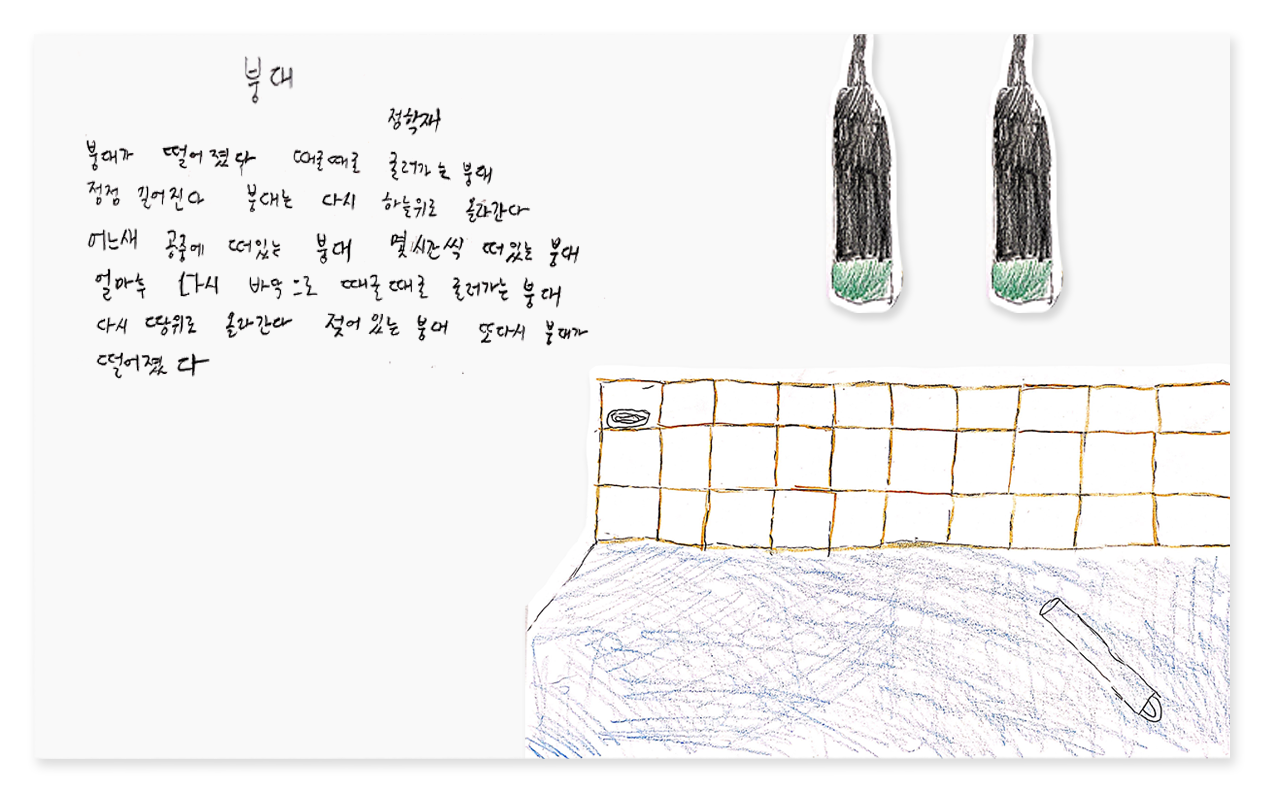 붕대
정학재
붕대가 떨어졌다 때굴때굴 굴러가는 붕대
정점 길어진다 붕대는 다시 하늘위로 올라간다
어느새 공중에 떠있는 붕대 몇시간씩 떠있는 붕대
얼마후 다시 바닥으로 때굴때굴 굴러가는 붕대
다시 땅위로 올라간다 젖어있는 붕대 또다시 붕대가
떨어졌다